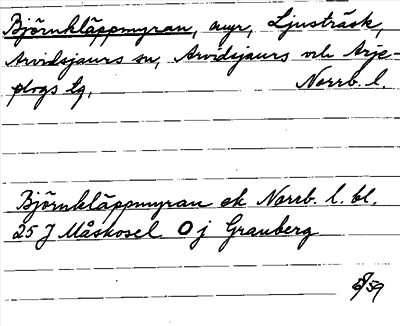 Björnkläppmyran, myr, Ljusträsk,
Arvidsjaurs sn, Arvidsjaurs och Arje-
plogs tg, Norrb. l.
Björnkläppmyran ek Norrb. l. bl.
25 J Måskosel O j Granberg
59